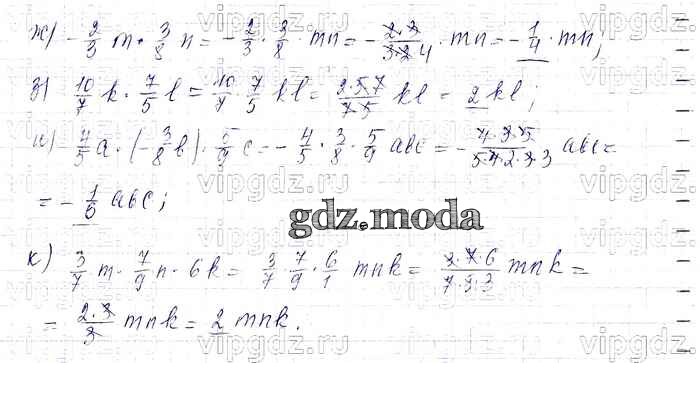 ж) -2/3 m · 3/8 n = -2/3 · 3/8 · mn = -2·3/3·2·4 · mn = -1/4 · mn;
з) 10/7 k · 7/5 l = 10/7 · 7/5 kl = 2·5·7/7·5 kl = 2kl;
и) -4/5 a · (-3/8 b) · 5/9 c = -4/5 · 3/8 · 5/9 abc = -4·3·5/5·4·2·3·3 abc =
= -1/6 abc;
gdz.moda
к) 3/7 m · 7/9 n · 6k = 3/7 · 7/9 · 6/1 mnk = 3·7·6/7·3·3 mnk =
= 2·3/3 mnk = 2 mnk.
vipgdz.com